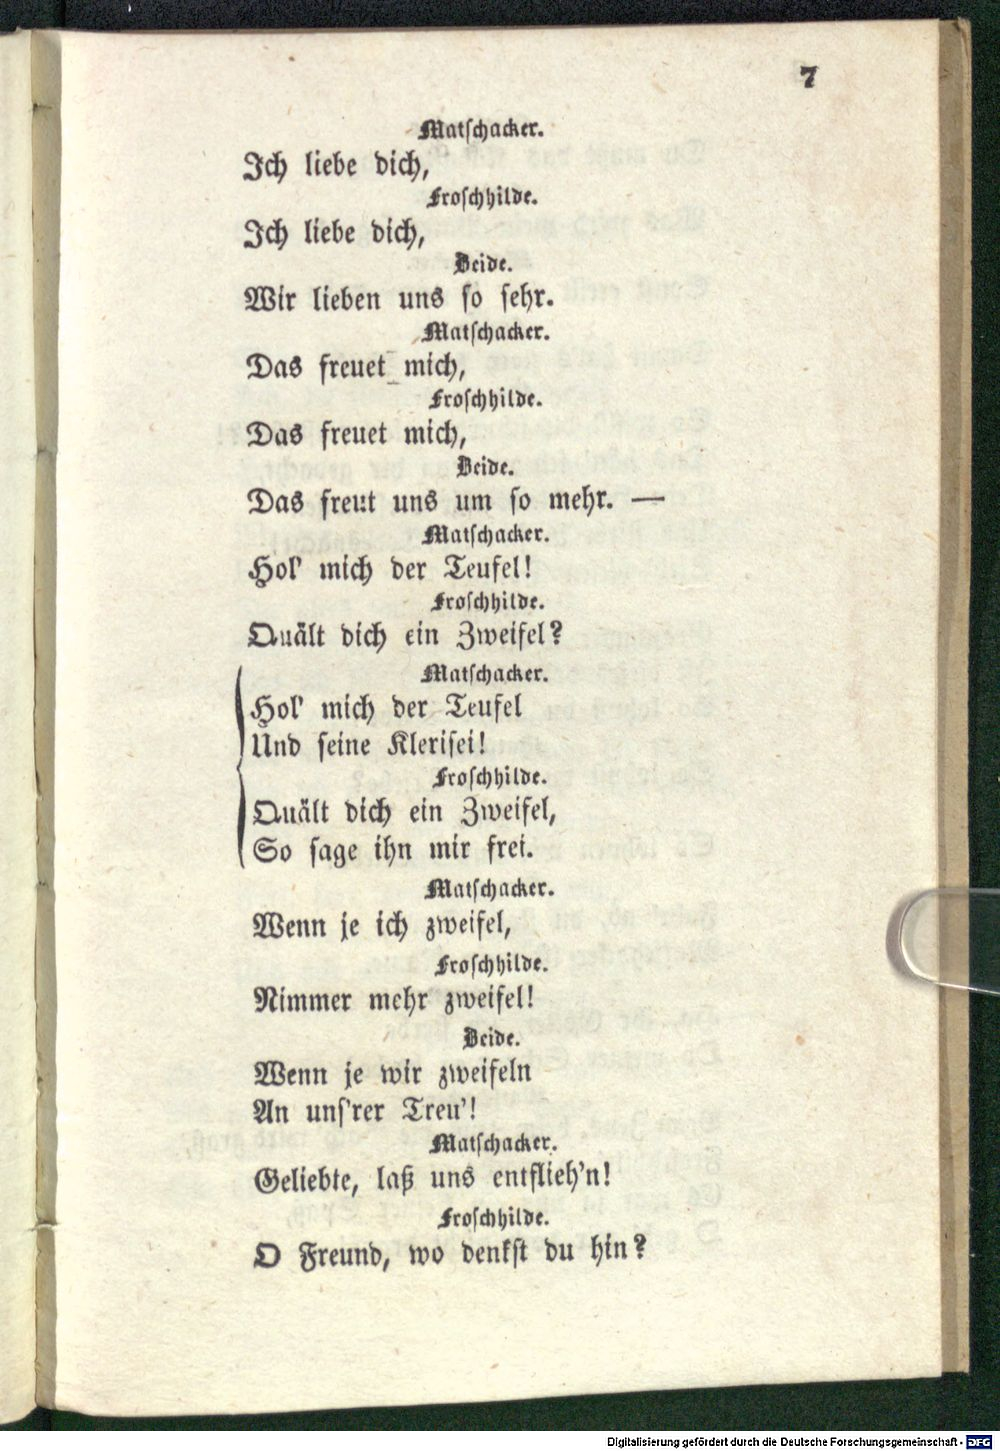 7
Matschacker.
Ich liebe dich,
Froschhilde.
Ich liebe dich,
Beide.
Wir lieben uns so sehr.
Matschacker.
Das freuet mich,
Froschhilde.
Das freuet mich,
Beide.
Das freut uns um so mehr. —
Matschacker.
Hol' mich der Teufel!
Froschhilde.
Quält dich ein Zweifel?
Matschacker.
Hol' mich der Teufel
Und seine Klerisei!
Froschhilde.
Quält dich ein Zweifel,
So sage ihn mir frei.
Matschacker.
Wenn je ich zweifel,
Froschhilde.
Nimmer mehr zweifel!
Beide.
Wenn je wir zweifeln
An uns'rer Treu'!
Matschacker.
Geliebte, laß uns entflieh'n!
Froschhilde.
O Freund, wo denkst du hin?
Digitalisierung gefördert durch die Deutsche Forschungsgemeinschaft - DFG